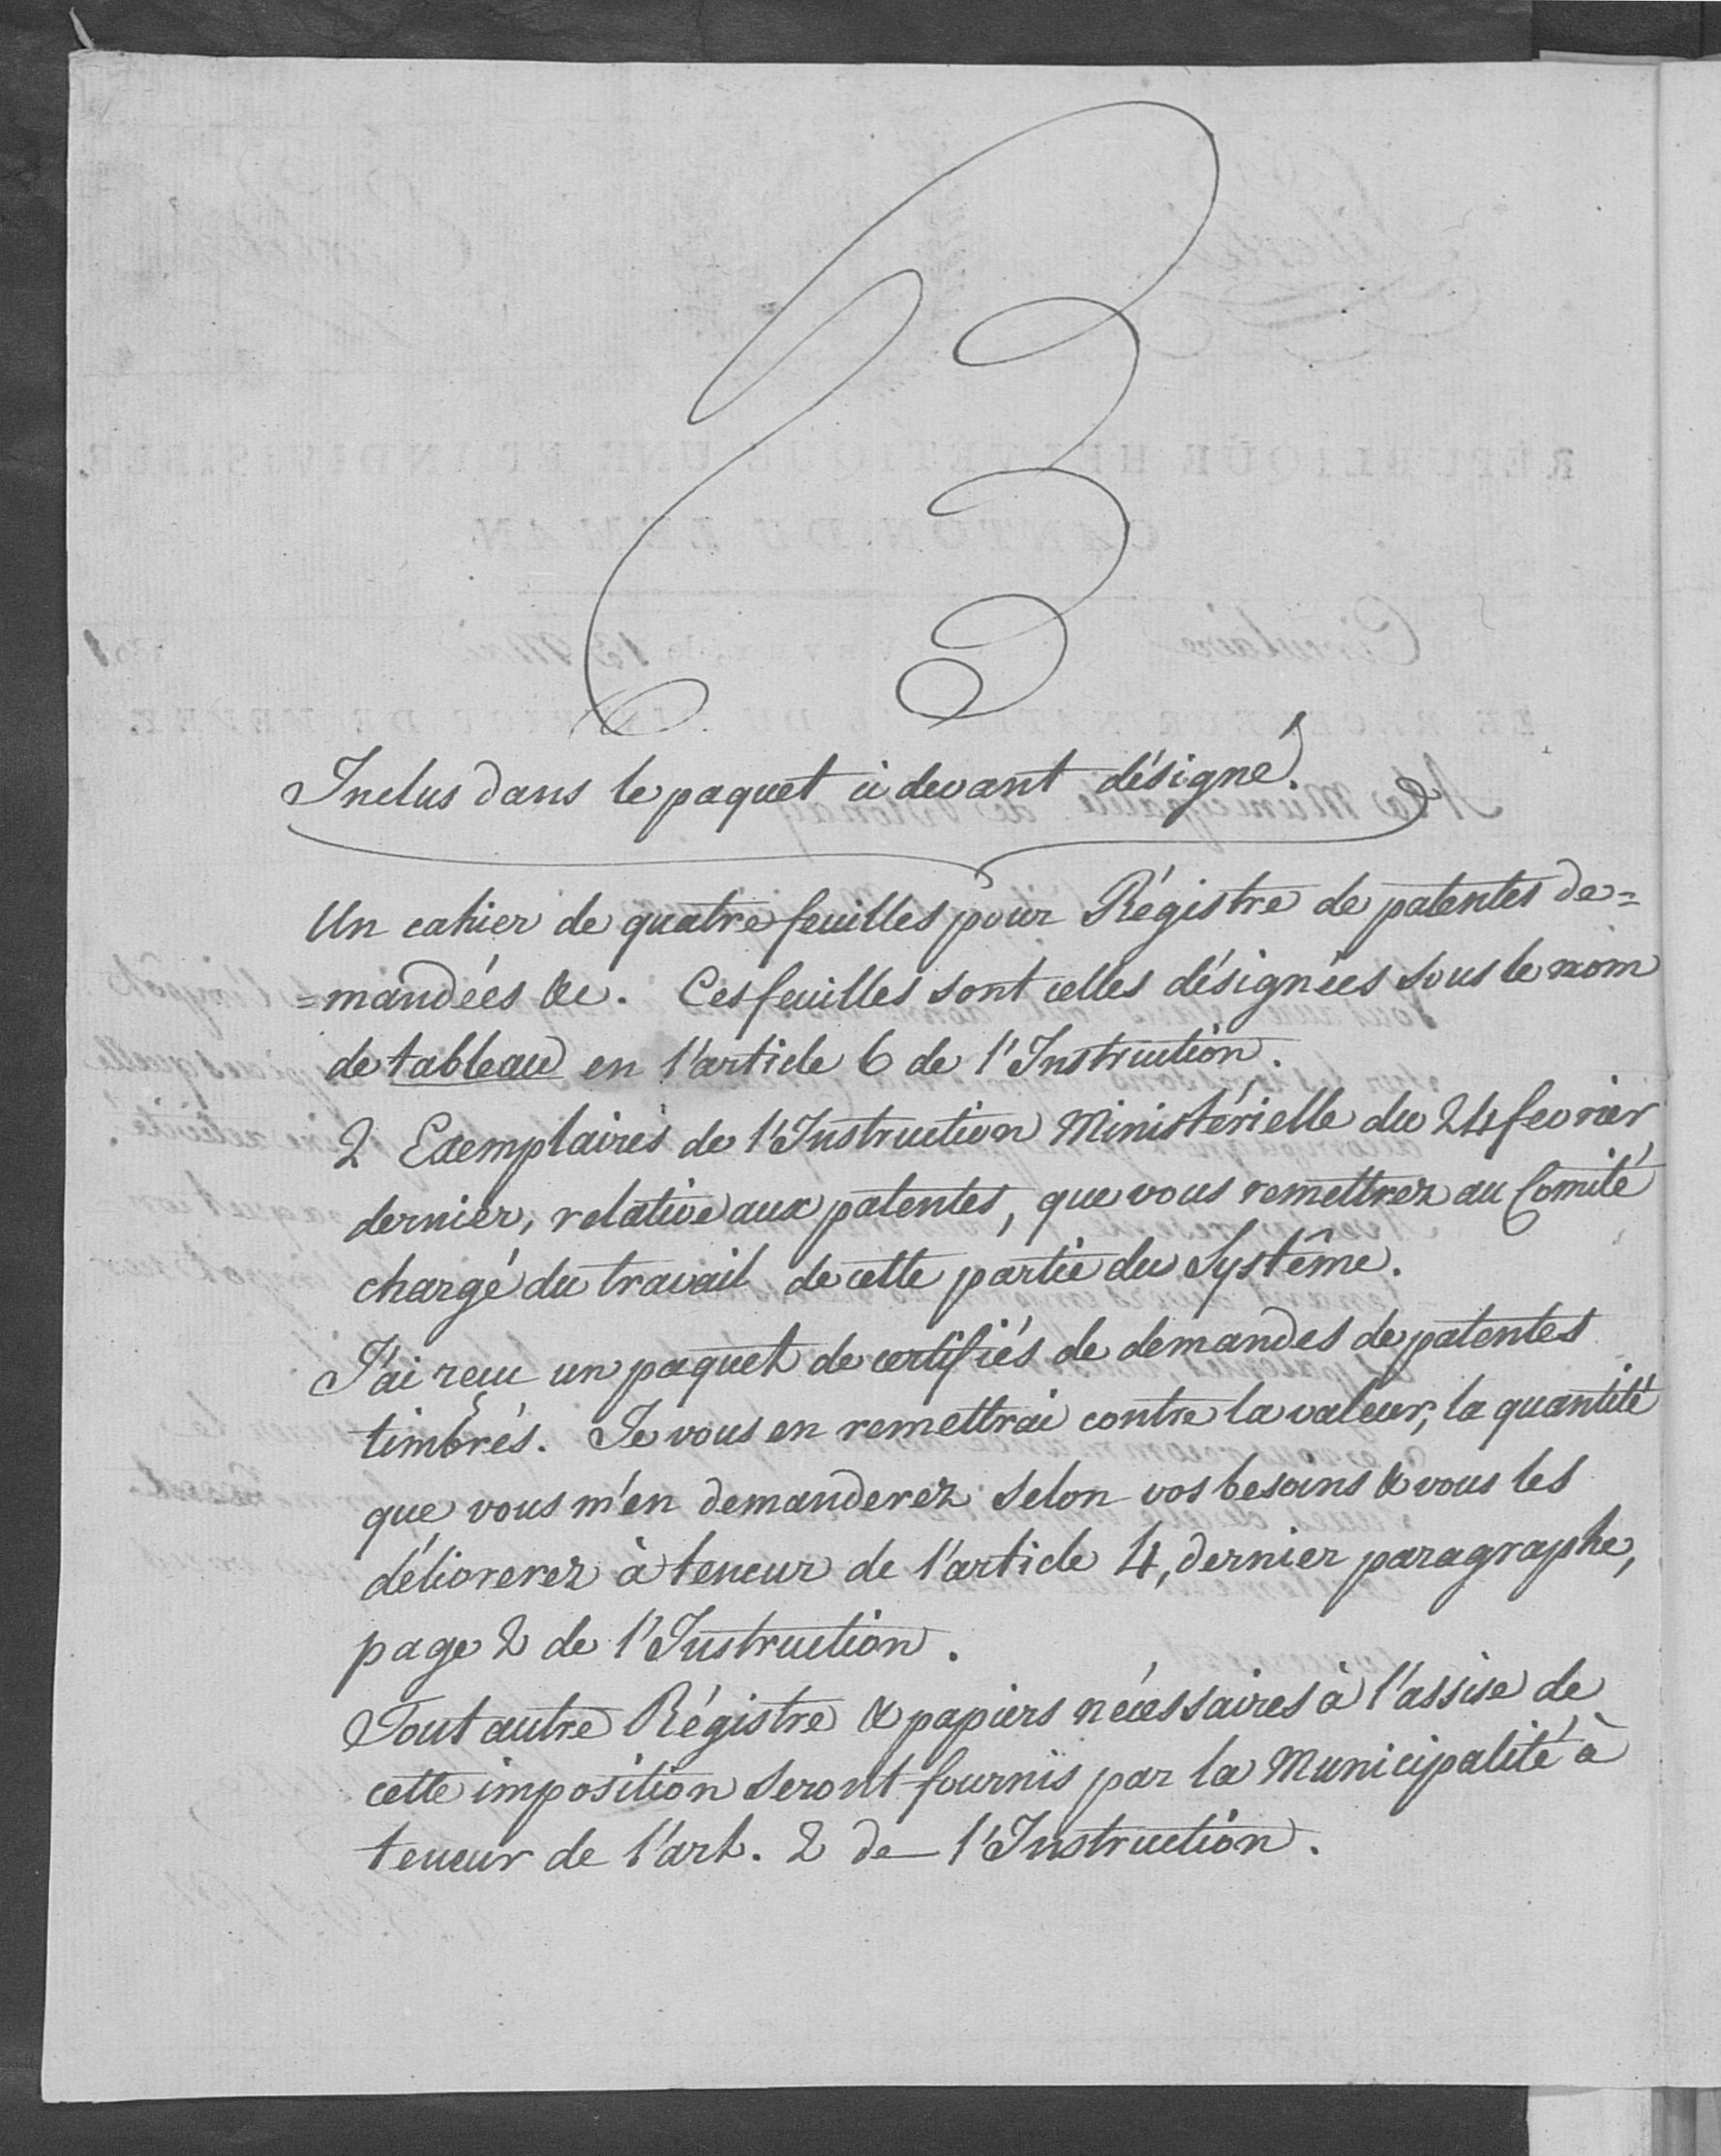 Inclus dans le paquet ci devant désigné.
Un cahier de quatre feuilles pour Régistre de patentes de=
=mandées &c. Ces feuilles sont celles désignées sous le nom
de tableau en l'article 6 de l'Instruction.
2 Exemplaires de l'Instruction Ministérielle du 24 fevrier
dernier, relative aux patentes, que vous remettrez au Comité
chargé du travail de cette partie du Systême.
J'ai reçu un paquet de certifiés de demandes de patentes
timbrés. Je vous en remettrai contre la valeur, la quantité
que vous m'en demanderez selon vos besoins & vous les
délivrerez à teneur de l'article 4, dernier paragraphe,
page 2 de l'Instruction.
Tout autre Régistre & papiers nécessaires à l'assise de
cette imposition seront fournis par la Municipalité à
teneur de l'art. 2 de l'Instruction.